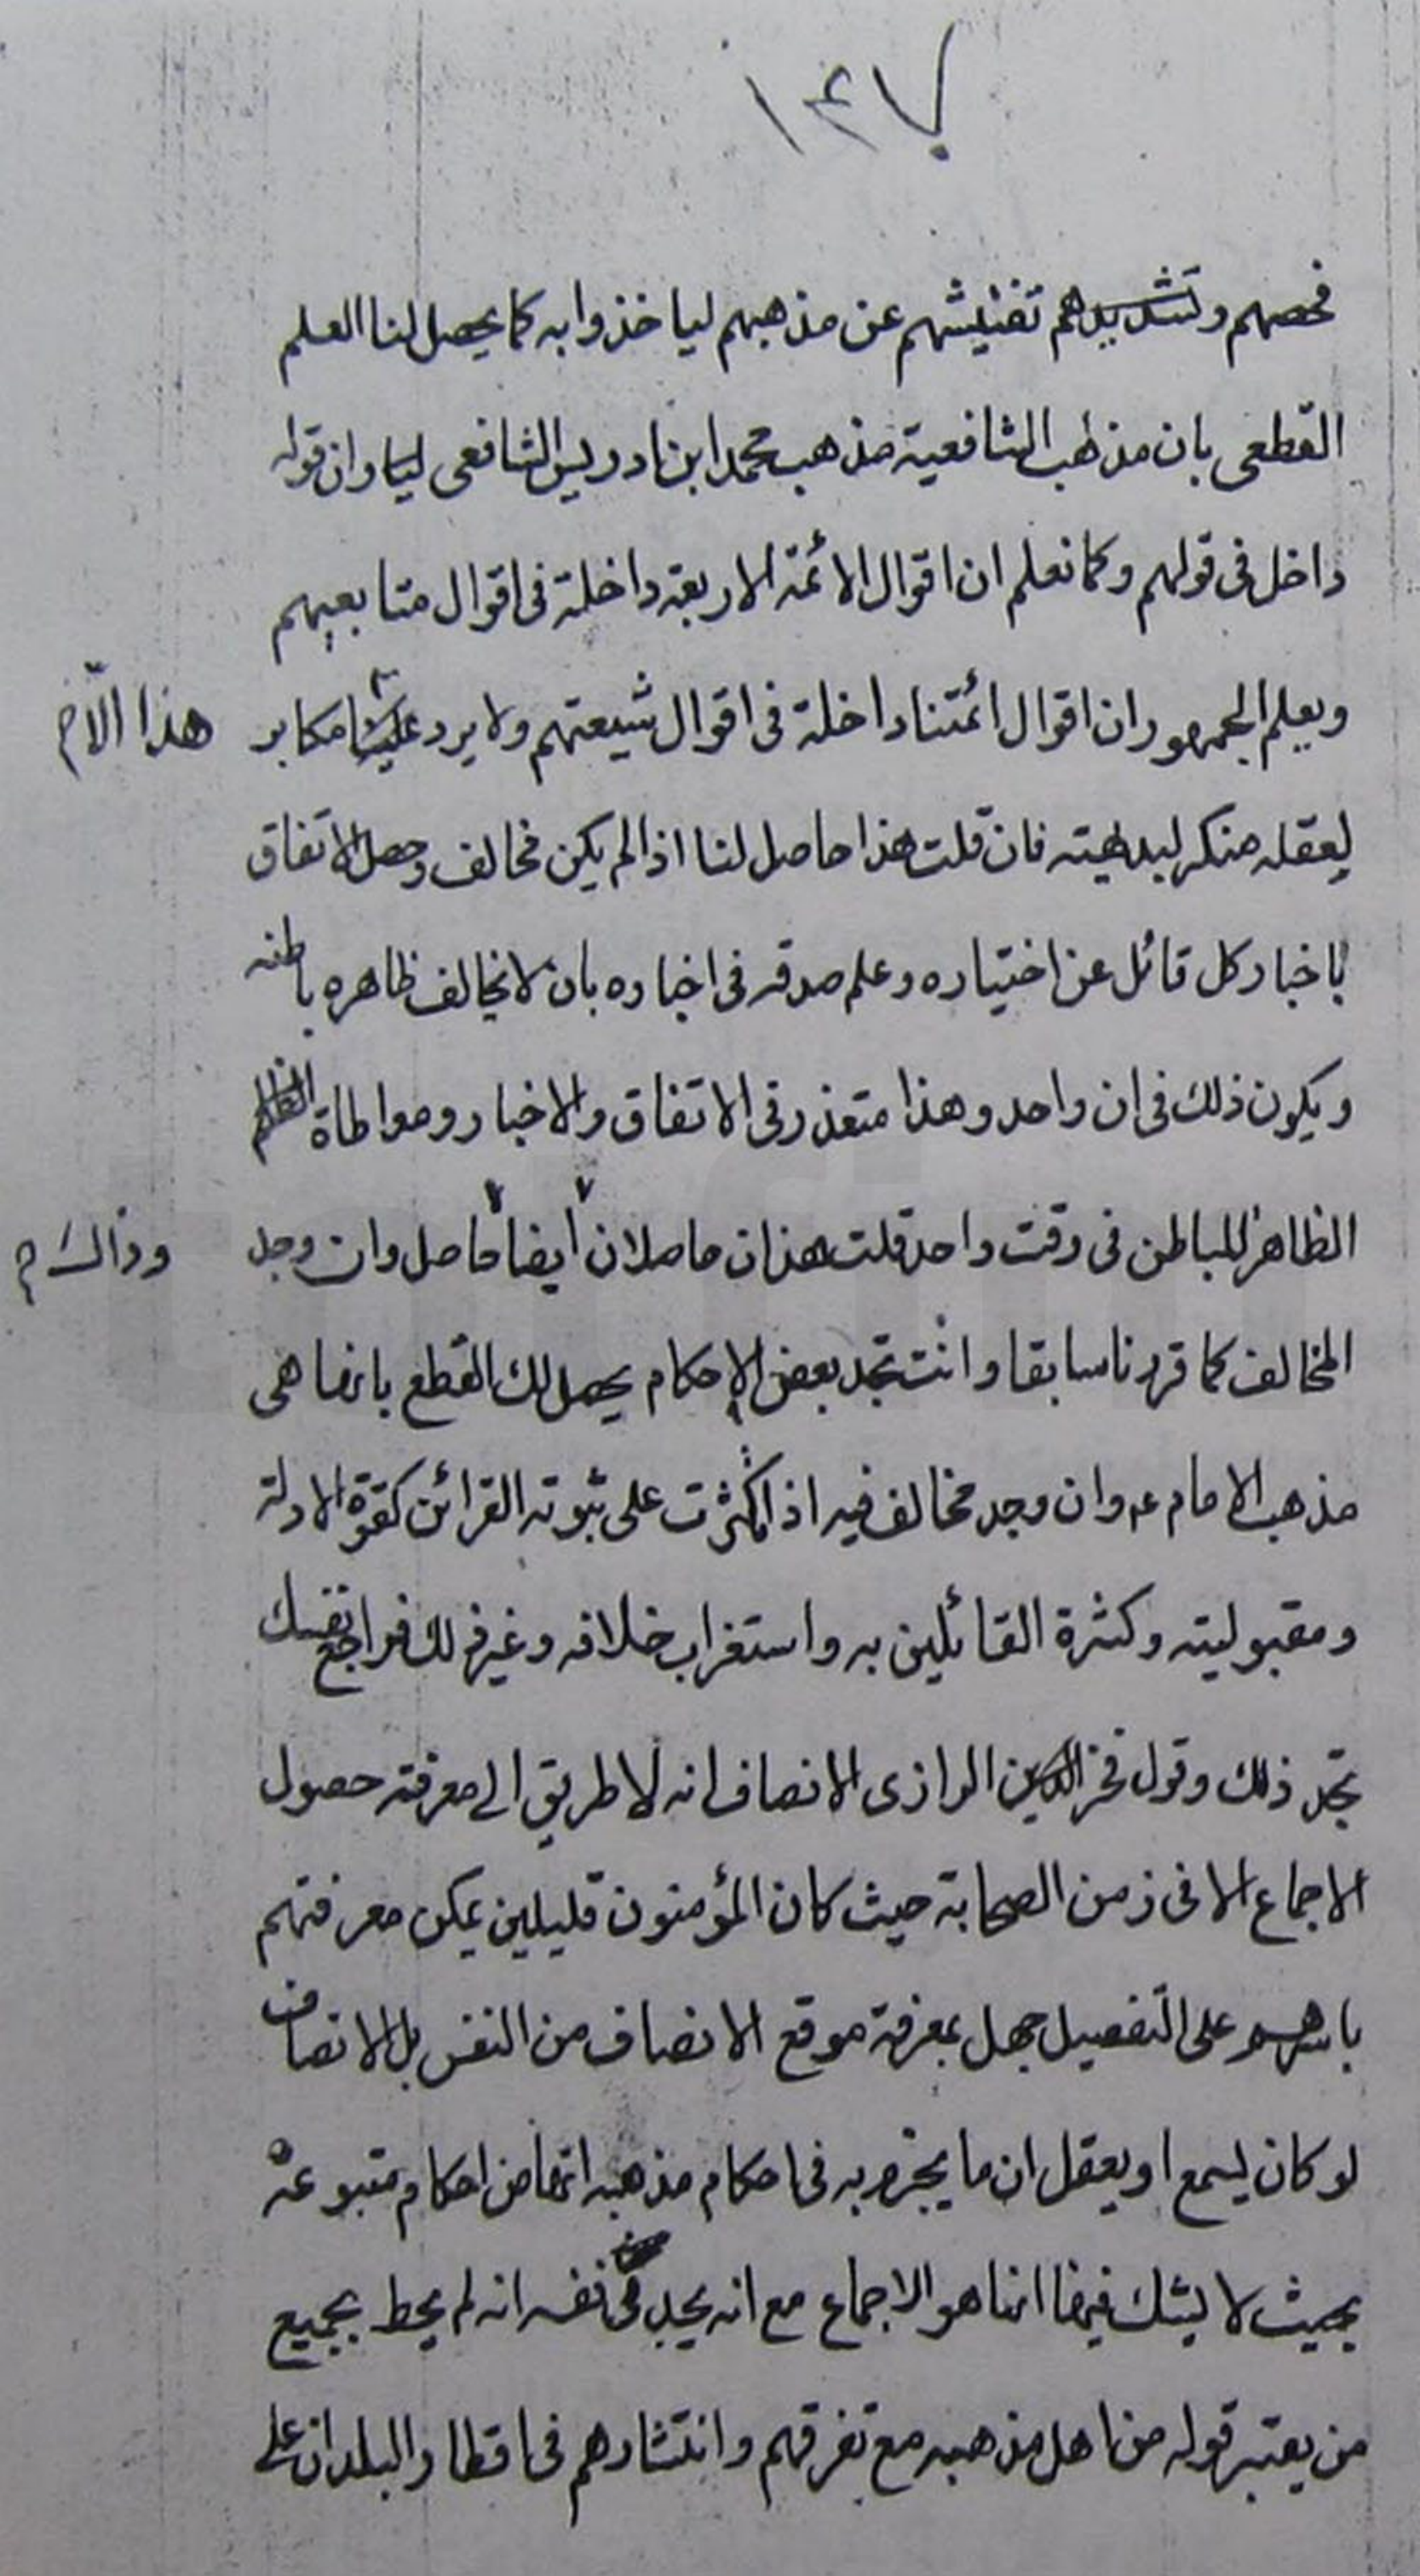 ١٤٧
فحصهم وتشديدهم تفتيشهم عن مذهبهم لياخذوا به كما يحصل لنا العلم
القطعى بان مذهب الشافعية مذهب محمد ابن ادريس الشافعى وان قوله
داخل فى قولهم وكما نعلم ان اقوال الائمة الاربعة داخلة فى اقوال متابعيهم
ويعلم الجمهور ان اقوال ائمتنا داخلة فى اقوال شيعتهم ولا يرد علينا مكابر
هذا الّا
لعقله منكر لبداهيته فان قلت هذا حاصل لنا اذا لم يكن مخالف وحصل الاتفاق
باخبار كل قائل عن اختياره وعلم صدقه فى اخباره بان لا يخالف ظاهره باطنه
ويكون ذلك فى ان واحد وهذا متعذر فى الاتفاق والاخبار ومواطاة
الظاهر للباطن فى وقت واحد قلت هذان حاصلان ايضا حاصل وان وجد
وذالك م
المخالف كما قررنا سابقا وانت تجد بعض الاحكام يحصل لك القطع بانها هى
مذهب الامام ع وان وجد مخالف فيه اذا كثرت على ثبوته القرائن كقوة الادلة
ومقبوليته وكثرة القائلين به واستغراب خلافه وغير ذلك فراجع نفسك
تجد ذلك وقول فخر الدين الرازى الانصاف انه لا طريق الى معرفة حصول
الاجماع الا فى زمن الصحابة حيث كان المؤمنون قليلين يمكن معرفتهم
باسرهم على التفصيل جهل بمعرفة موقع الانصاف من النفس بل الانصاف
لو كان يسمع او يعقل ان ما يجزم به فى احكام مذهبه انها من احكام متبوعه
بحيث لا يشك فيها انما هو الاجماع مع انه يجد فى نفسه انه لم يحط بجميع
من يعتبر قوله من اهل مذهبه مع تفرقهم وانتشارهم فى اقطار البلدان على